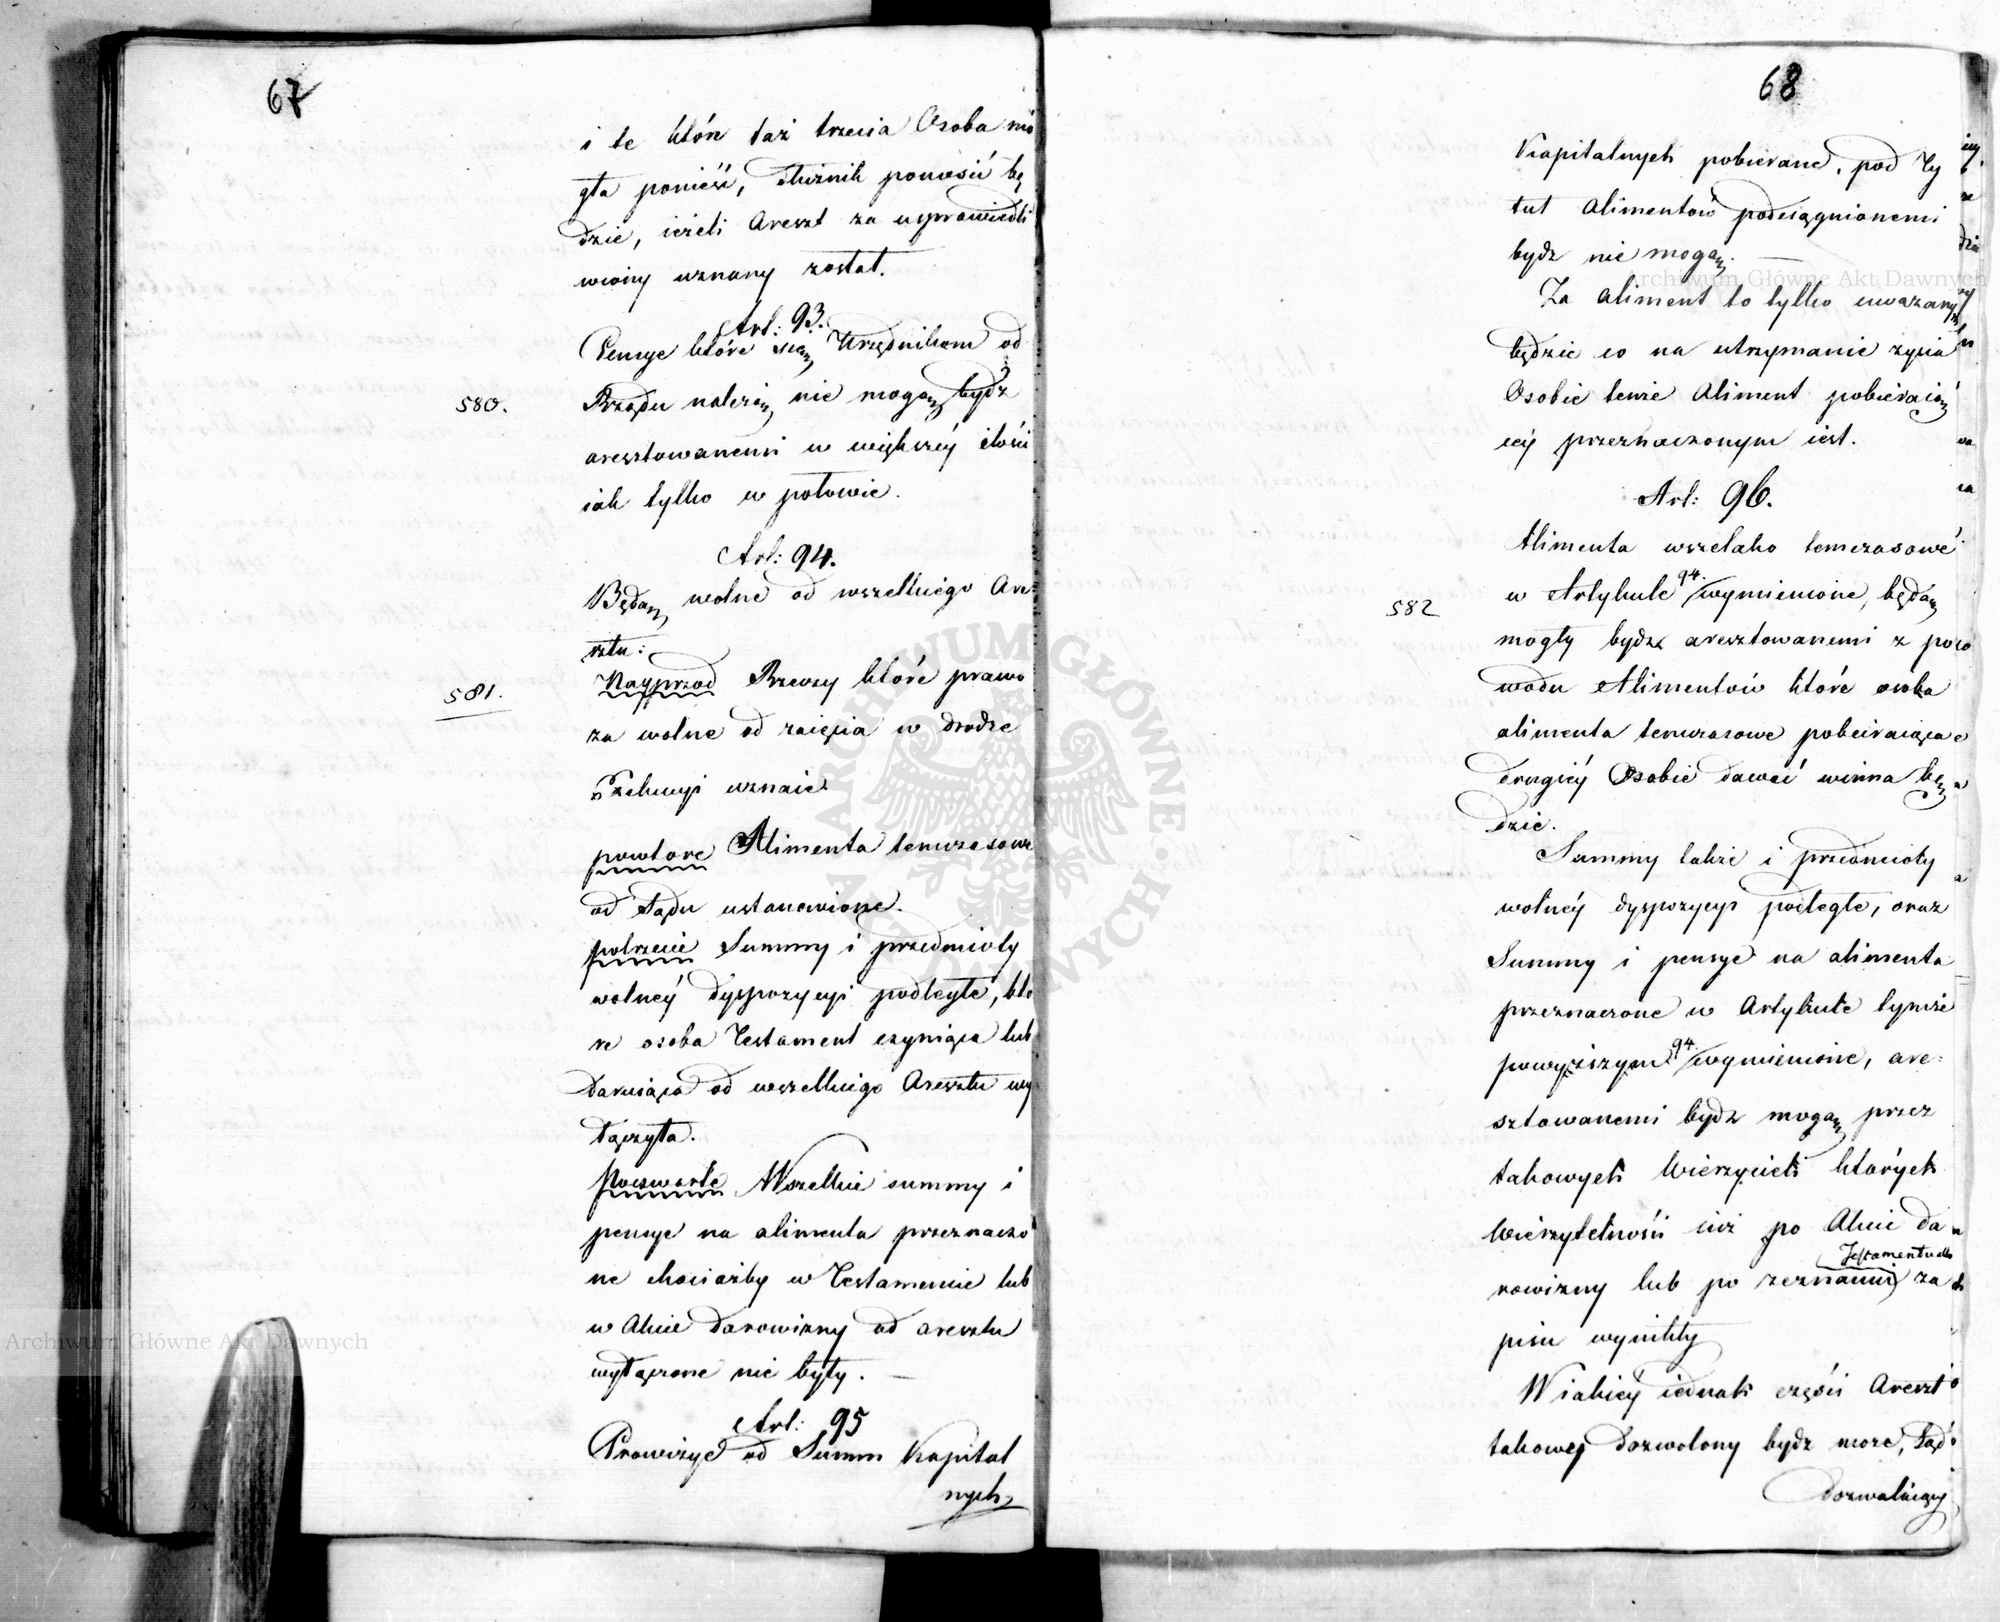 67
i te które taż trzecia Osoba mo
gła ponieść, dłużnik ponosić bę
dzie, ieżeli Areszt za usprawiedli
wiony uznany został.
Art: 93.
Pensye które się Urzędnikom od
580.
Rządu należą nie mogą bydź
aresztowanemi w większey ilości
iak tylko w połowie.
Art: 94.
Będą wolne od wszelkiego Are=
sztu:
581.
Nayprzod Rzeczy które prawo
za wolne od zaięcia w drodze
Exekucyi uznaie
powtore Alimenta temczasowe
od Sądu ustanowione.
potrzecie Summy i przedmioty
wolney dyspozycyi podległe, któ
re osoba Testament czyniąca lub
daruiąca od wszelkiego Aresztu wy
łączyła.
Poczwarte Wszelkie summy i
pensye na alimenta przeznaczo
ne chociażby w Testamencie lub
w Akcie darowizny od aresztu
wyłączone nie były. —
Art: 95
Prowizye od Summ Kapital
nych
68
Kapitalnych pobierane, pod Ty
tuł Alimentów podciągnionemi
bydz nie mogą. —
Za aliment to tylko uważany
będzie co na utrzymanie życia
Osobie tenże Aliment pobieraią
cey przeznaczonym iest.
Art: 96.
Alimenta wszelako temczasowe
582
w Artykule 94. wymienione, będą
mogły bydz aresztowanemi z po
wodu Alimentów które osoba
alimenta temczasowe pobieraiąca
drugiey Osobie dawać winna bę
dzie.
Summy także i przedmioty
wolney dyspozycyi podległe, oraz
Summy i pensye na alimenta
przeznaczone w Artykule tymże
powyższym 94. wymienione, are=
sztowanemi bydz mogą przez
takowych Wierzycieli których
Wierzytelności iuż po Akcie da
rowizny lub po zeznaniu Testamentu albo za
pisu wynikły
W iakiey iednak części Areszt
takowey dozwolony bydz może, Sąd
dozwalaiący
Archiwum Główne Akt Dawnych
Archiwum Główne Akt Dawnych
ARCHIWUM GŁÓWNE AKT DAWNYCH